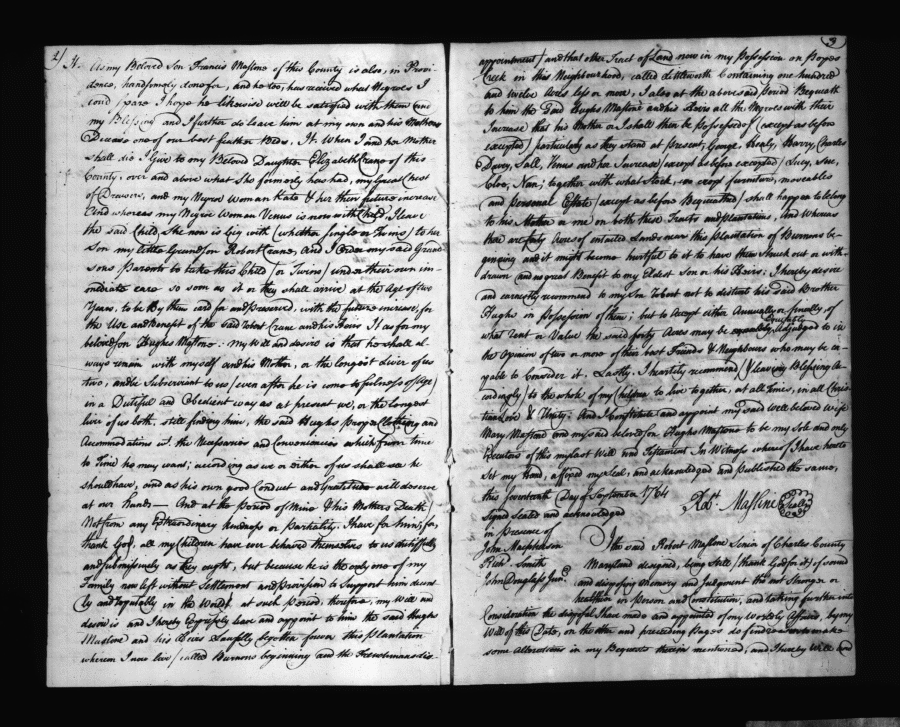 2/
It. As my Beloved Son Francis Mastone of this County is also, in Provi-
dence, handsomely done for, and he too, has received what Negroes I
could spare I hope he likewise will be satisfied with them and
my Blessing and I further do leave him at my own and his Mothers
Decease one of our best feather Beds. It. When I and her Mother
shall die I give to my Beloved Daughter Elizabeth Crane of this
County, over and above what She formerly has had, my Great Chest
of Drawers, and my Negroe Woman Kate & her future increase
And whereas my Negroe Woman Venus is now with Child, I leave
the said Child She now is big with (whether Single or Twins) to her
Son my little Grandson Robert Crane, And I Order my said Grand
sons Parents to take this Child (or Twins) under their own im-
mediate care so soon as it or they shall arrive at the Age of two
Years, to be By them card for and preserved, with the future increase, for
the Use and benefit of the said Robert Crane and his Heirs It as for my
beloved Son Hughes Mastone: my Will and desire is that he shall al-
ways remain with myself and his Mother, or the longest liver of us
two, and be Subservient to us (even after he is come to fulness of Age)
in a Dutiful and Obedient way as at present we, or the longest
liver of us both, still finding him, the said Hughs Proper Clothing and
Accommodations in the Necessaries and Conveniencies which from time
to Time he may want; according as we or either of us shall see he
should have, and as his own good Conduct and Gratitude will deserve
at our hands— And at the period of Mine & his Mothers Death
(Not from any Extraordinary kindness or Partiality, I have for him, for,
thank God, all my Children have ever behaved themselves to us dutifully
and submissively as they ought, but because he is the only one of my
Family now left without Settlement and provision to Support him decent
ly and reputably in the World) at such period, therefore, my Will and
desire is and I hereby Expressly leave and appoint to him the said Hughs
Mastone and his Heirs Lawfully begotten forever This plantation
wherein I now live (called Burrows beginning and the Frenchmans dis-
3
appointment) and that other Tract of Land now in my Possession on Popes
Creek in this Neighbourhood, called Littleworth Containing one hundred
and twelve Acres less or more; I also at the abovesaid period Bequeath
to him the Said Hughs Mastone and his Heirs all the Negroes with their
Increase that his Mother or I shall then be Possessed of (except as before
excepted) particularly as they stand at present; George, Healy, Harry, Charles
Davy, Sall, Venus and her Increase (except as before excepted) Lucy, Sue,
Cloe, Nan; together with what Stock, or crops furniture, moveables
and Personal Estate (except as before Bequeathed) shall happen to belong
to his Mother or me on both these Tracts and plantations, And Whereas
there are forty Acres of entailed Lands near this Plantation of Burrows be-
ginning and it might become hurtful to it to have them Struck out or with-
drawn and no great Benefit to my Eldest Son or his Heirs: I hereby desire
and earnestly recommend to my Son Robert not to disturb his said Brother
Hughs in Possession of them; but to Accept either Annually or finally of
what Rent or Value the said forty Acres may be equitably Adjudged to in
the Opinion of two or more of their best Friends & Neighbours who may be en-
gaged to Consider it. Lastly. I heartily recommend (& leaving Blessing Ac-
cordingly) to the whole of my Children to live together, at all times, in all Chris-
tian Love & Unity: And I Constitute and appoint my said well beloved Wife
Mary Mastone and my said beloved Son Hughs Mastone to be my Sole and only
Executors of this my last Will and Testament In Witness whereof I have hereto
Set my Hand, affixed my Seal, and acknowledged and published the same,
this Seventeenth Day of September 1764
Robt. Mastone (Seal)
Signd Sealed and acknowledged
in presence of
John Macpherson
Richd. Smith
John Douglass Junr.
I the said Robert Mastone Senior of Charles County
Maryland designed, being still (thank God for it) of sound
and disposing Memory and Judgment tho' not Stronger or
healthier in person and Constitution, and taking further into
Consideration the disposal I have made and appointed of my Worldly Affairs, by my
Will of this Date, on the other and preceeding Pages do find
some alterations in my Bequests therein mentioned; and I hereby Will and